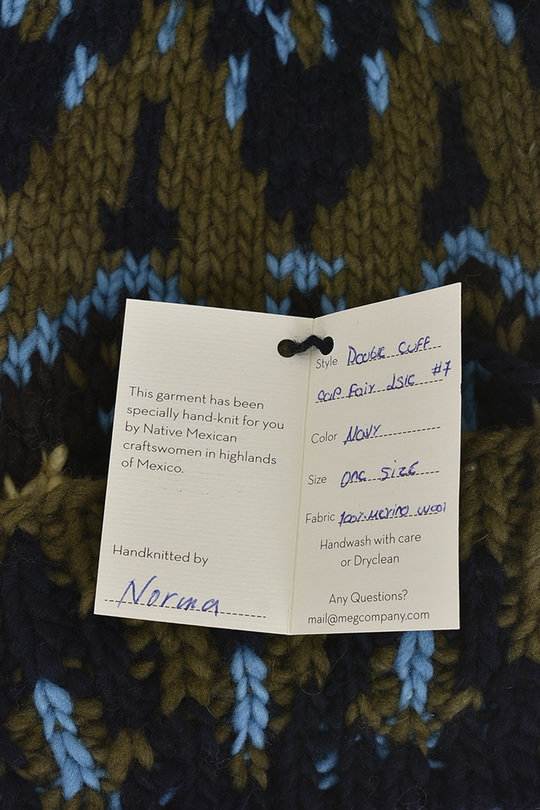 This garment has been
specially hand-knit for you
by Native Mexican
craftswomen in highlands
of Mexico.
Handknitted by
Norma
Style Double Cuff
Cap Fair Isle #7
Color Navy
Size One Size
Fabric 100% Merino Wool
Handwash with care
or Dryclean
Any Questions?
mail@megcompany.com